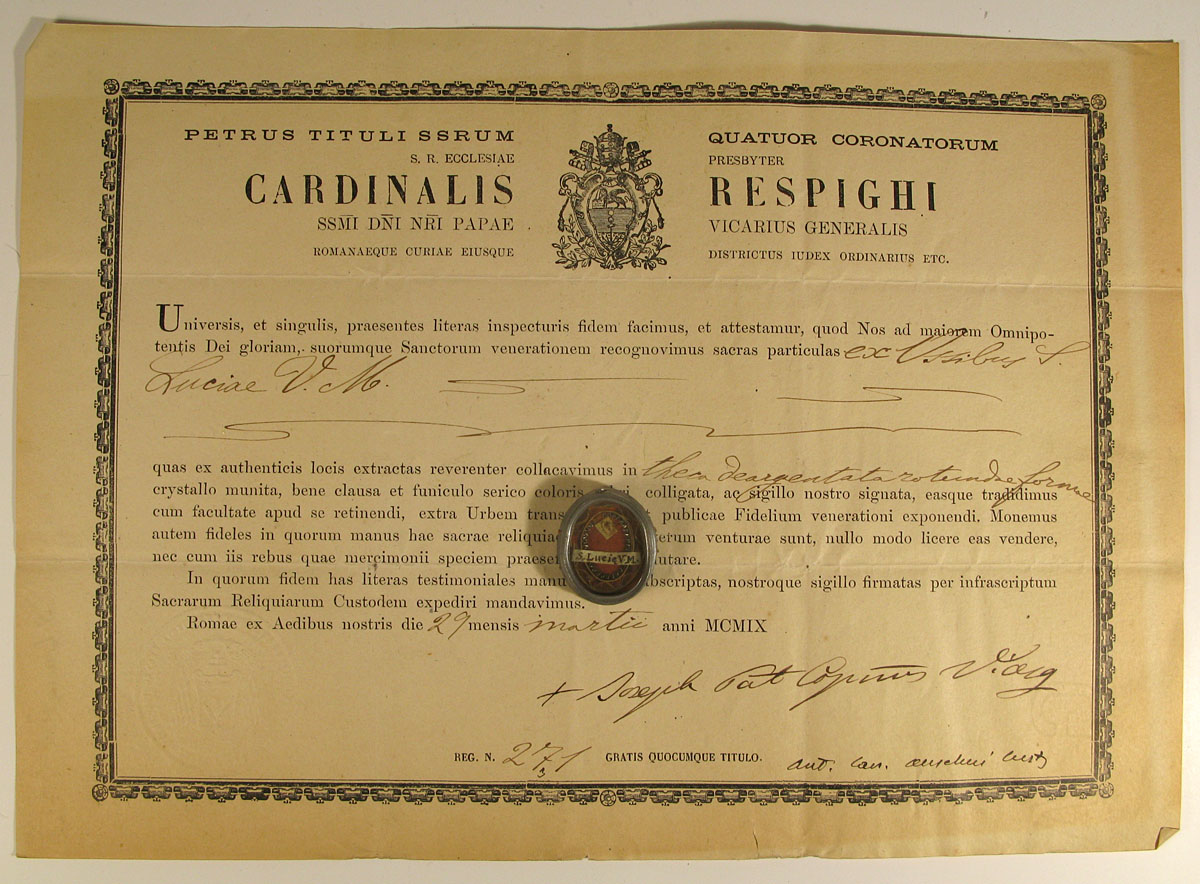 PETRUS TITULI SSRUM QUATUOR CORONATORUM
S. R. ECCLESIAE PRESBYTER
CARDINALIS RESPIGHI
SSM̄I DN̄I NR̄I PAPAE VICARIUS GENERALIS
ROMANAEQUE CURIAE EIUSQUE DISTRICTUS IUDEX ORDINARIUS ETC.
Universis, et singulis, praesentes literas inspecturis fidem facimus, et attestamur, quod Nos ad maiorem Omnipo-
tentis Dei gloriam, suorumque Sanctorum venerationem recognovimus sacras particulas ex Ossibus S.
Luciae V. M.
quas ex authenticis locis extractas reverenter collacavimus in theca deargentata rotundae formae
crystallo munita, bene clausa et funiculo serico coloris colligata, ac sigillo nostro signata, easque tradidimus
cum facultate apud se retinendi, extra Urbem trans publicae Fidelium venerationi exponendi. Monemus
autem fideles in quorum manus hae sacrae reliquiae erum venturae sunt, nullo modo licere eas vendere,
nec cum iis rebus quae mercimonii speciem praese utare.
S. Lucie V M.
In quorum fidem has literas testimoniales manu bscriptas, nostroque sigillo firmatas per infrascriptum
Sacrarum Reliquiarum Custodem expediri mandavimus.
Romae ex Aedibus nostris die 29 mensis martii anni MCMIX
+ Joseph Pat Vicesg
REG. N. 271 GRATIS QUOCUMQUE TITULO. Ant. Can. Cust